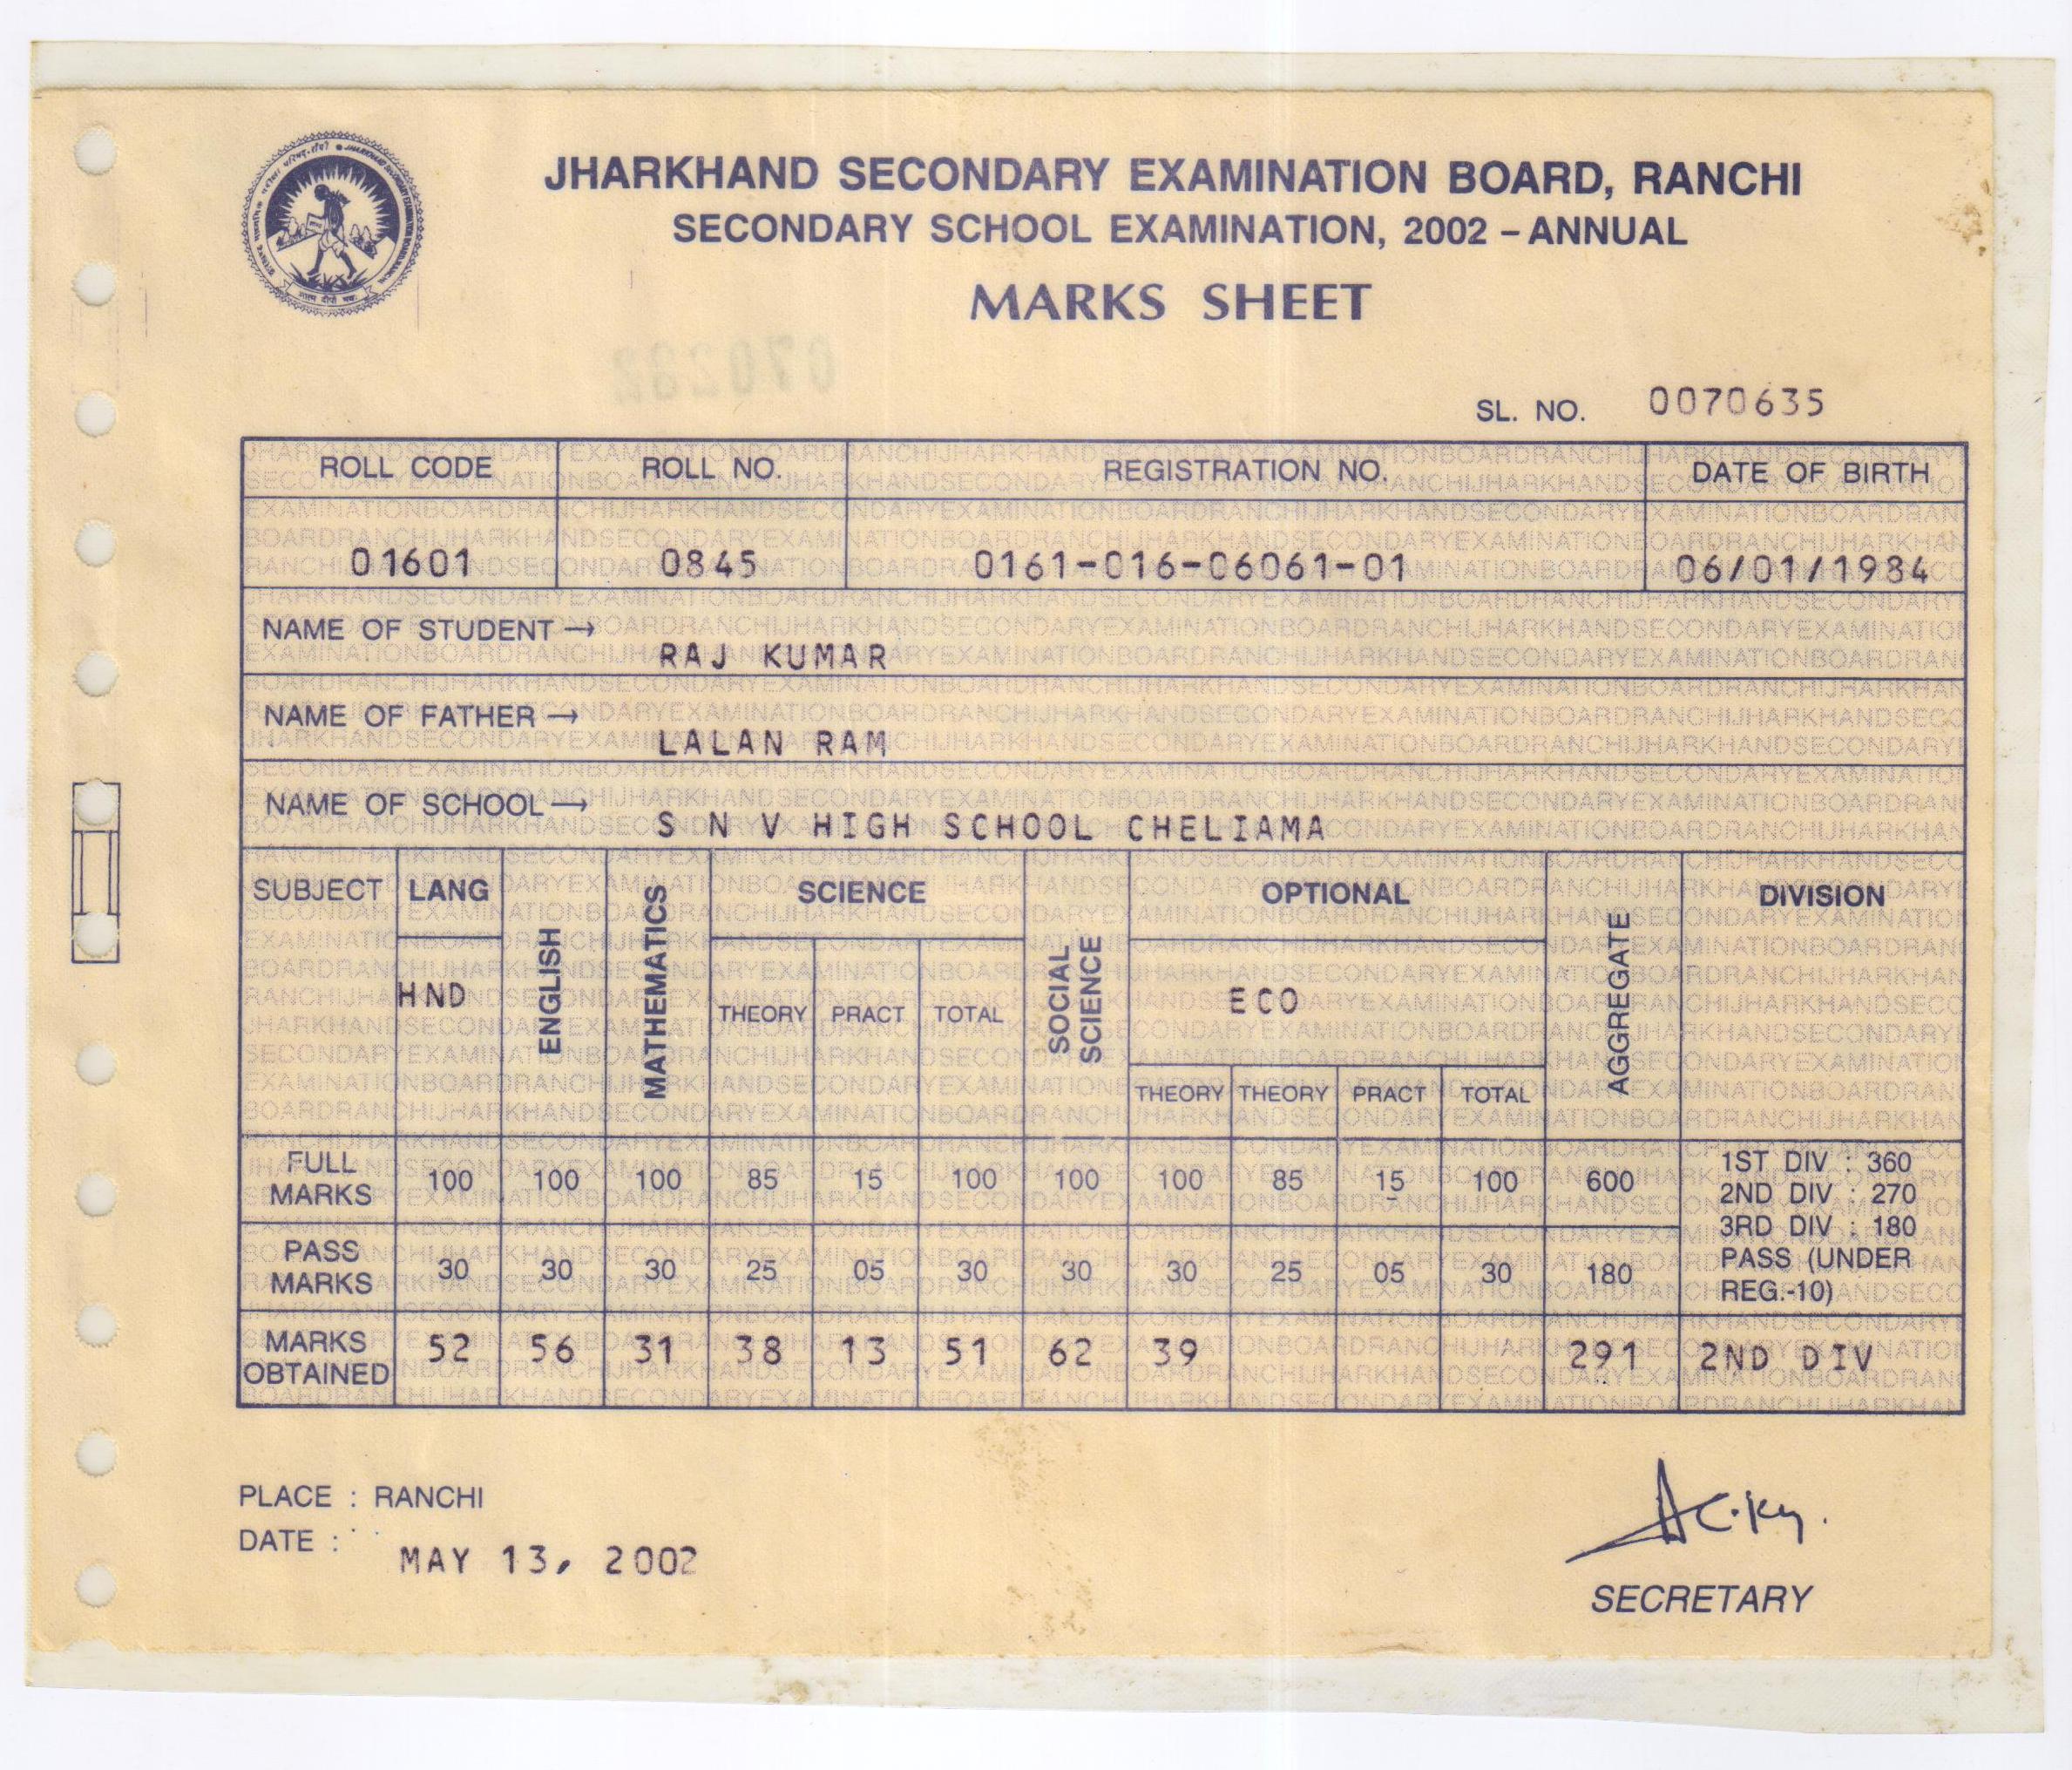 JHARKHAND SECONDARY EXAMINATION BOARD, RANCHI
SECONDARY SCHOOL EXAMINATION, 2002 – ANNUAL
MARKS SHEET
SL. NO. 0070635
ROLL CODE ROLL NO. REGISTRATION NO. DATE OF BIRTH
01601 0845 0161-016-06061-01 06/01/1984
NAME OF STUDENT →
RAJ KUMAR
NAME OF FATHER →
LALAN RAM
NAME OF SCHOOL →
S N V HIGH SCHOOL CHELIAMA
SUBJECT LANG ENGLISH MATHEMATICS SCIENCE SOCIAL SCIENCE OPTIONAL AGGREGATE DIVISION
HND THEORY PRACT TOTAL ECO
THEORY THEORY PRACT TOTAL
FULL MARKS 100 100 100 85 15 100 100 100 85 15 100 600
1ST DIV : 360
2ND DIV : 270
3RD DIV : 180
PASS MARKS 30 30 30 25 05 30 30 30 25 05 30 180
PASS (UNDER
REG.-10)
MARKS OBTAINED 52 56 31 38 13 51 62 39 291 2ND DIV
PLACE : RANCHI
DATE : MAY 13, 2002
SECRETARY